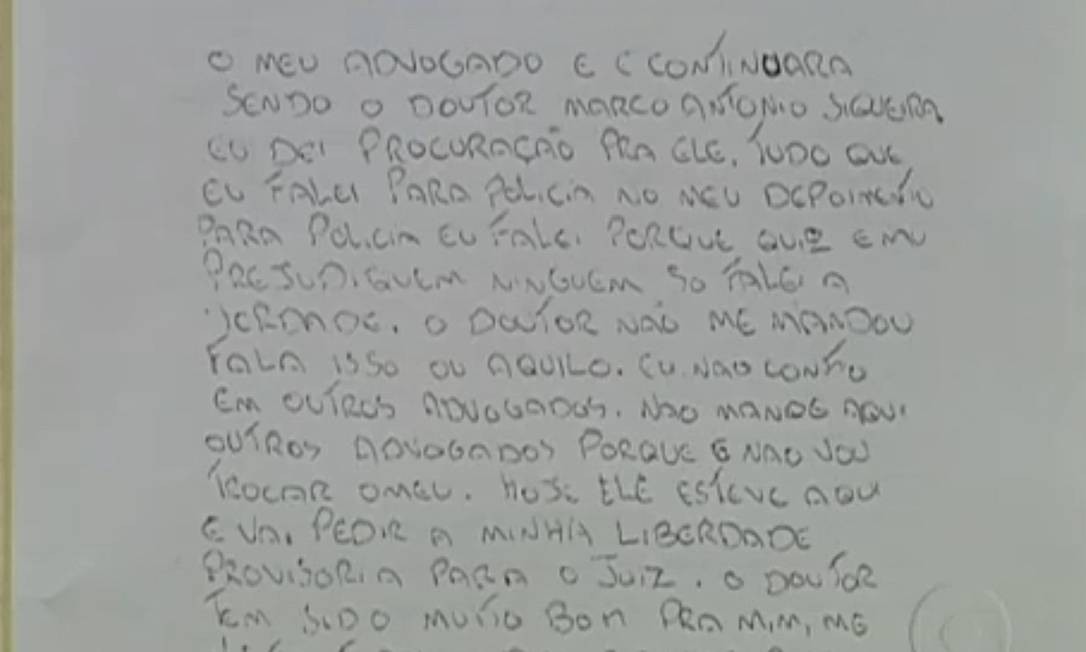 O MEU ADVOGADO E E CONTINUARA
SENDO O DOUTOR MARCO ANTONIO SIGUEIRA
EU DEI PROCURAÇÃO PRA ELE. TUDO QUE
EU FALEI PARA POLICIA NO MEU DEPOIMENTO
PARA POLICIA EU FALEI PORQUE QUIZ E NU
PREJUDIGUEM NINGUEM SO FALEI A
VERDADE. O DOUTOR NÃO ME MANDOU
FALA ISSO OU AQUILO. EU NAO CONFIO
EM OUTROS ADVOGADOS. NAO MANDE AQUI
OUTROS ADVOGADOS PORQUE E NAO VOU
TROCAR O MEU. HOJE ELE ESTEVE AQUI
E VAI PEDIR A MINHA LIBERDADE
PROVISORIA PARA O JUIZ. O DOUTOR
TEM SIDO MUITO BOM PRA MIM, ME